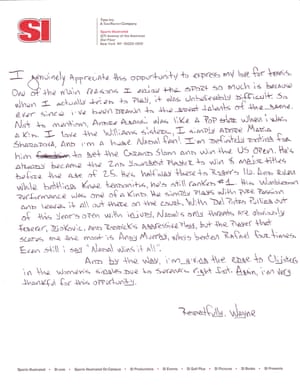 SI
Time Inc.
A TimeWarner Company
Sports Illustrated
New York, NY 10020-1393
I genuinely appreciate this opportunity to express my love for tennis.
One of the main reasons I enjoy the sport so much is because
when I actually tried to play, it was unbelievably difficult. So
ever since i've been drawn to the sport talents of the game.
Not to mention, Andre Agassi was like a pop star when I was
a kid. I love the Williams sisters, I simply adore Maria
Sharapova, and i'm a huge Nadal fan! I'm definitely rooting for
him to get the Grand Slam and win the US Open. He's
already became the 2nd youngest player to win 8 major titles
before the age of 25. He's half way there to Roger's 16. And even
while battling knee tendonitis, he's still ranked #1. His Wimbledon
performance was one of a kind. He plays with pure passion
and leaves it all out there on the court. With Del Potro pulling out
of this year's open with injury, Nadal's only threats are obviously
Federer, Djokovic, and Roddick's aggressive play, but the player that
scares me the most is Andy Murray, who's beaten Rafael four times.
Even still i say "Nadal wins it all".
And by the way, i'm giving the edge to Clijsters
in the women's singles due to Serena's right foot. Again, i'm very
thankful for this opportunity.
Respectfully, Wayne
Sports Illustrated
SI.com
Sports Illustrated On Campus
SI Productions
SI Events
SI Golf Plus
SI Pictures
SI Books
SI Presents